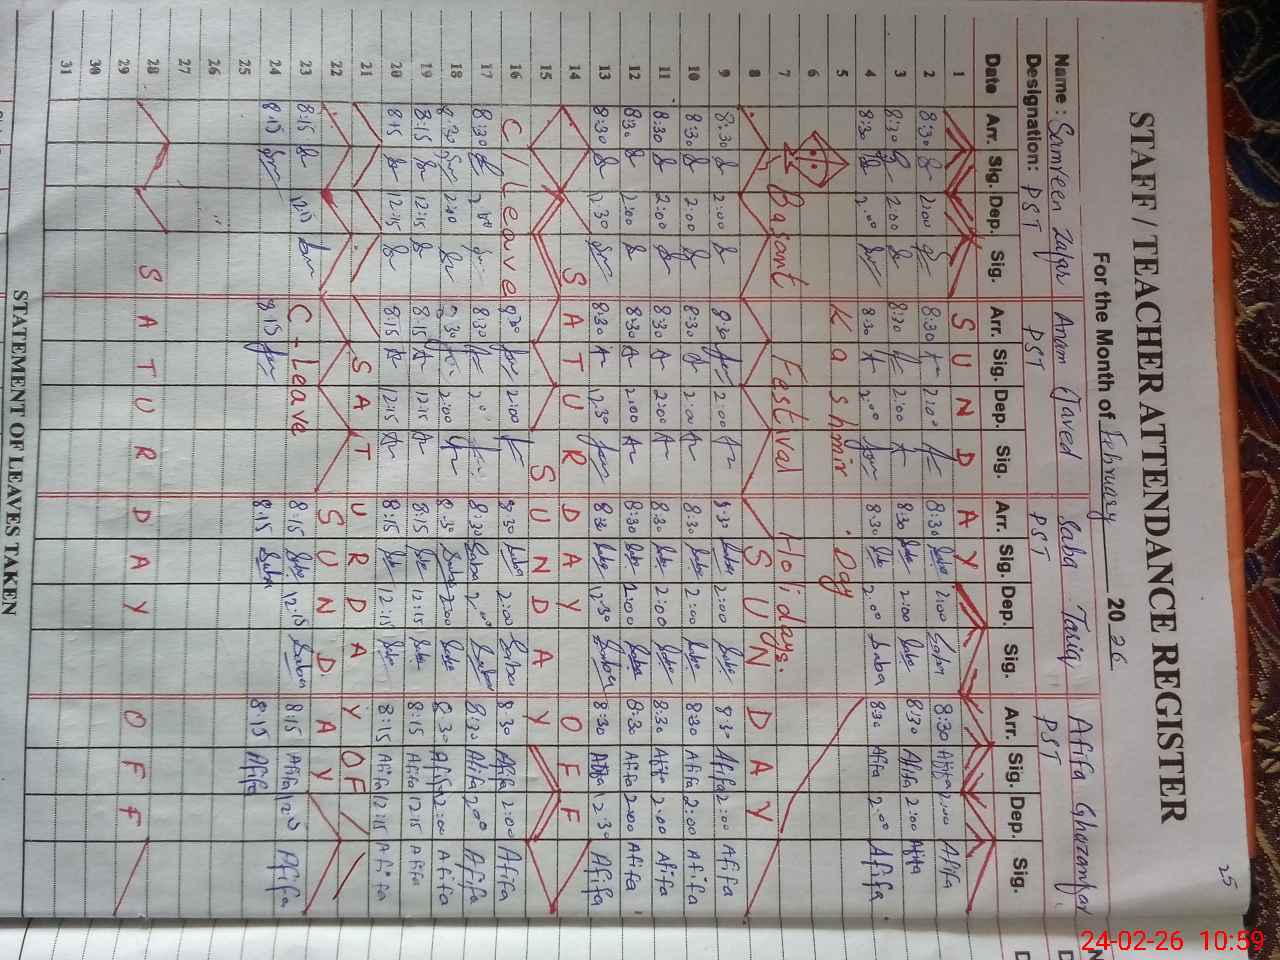 25
STAFF / TEACHER ATTENDANCE REGISTER
For the Month of February 2026
Name : Samreen Zafar Anam Javed Saba Tariq Afifa Ghazanfar
Designation: PST PST PST PST
Date Arr. Sig. Dep. Sig. Arr. Sig. Dep. Sig. Arr. Sig. Dep. Sig. Arr. Sig. Dep. Sig.
1 SUNDAY
2 8:30 2:00 8:30 2:00 8:30 Saba 2:00 Saba 8:30 Afifa 2:00 Afifa
3 8:30 2:00 8:30 2:00 8:30 Saba 2:00 Saba 8:30 Afifa 2:00 Afifa
4 8:30 2:00 8:30 2:00 8:30 Saba 2:00 Saba 8:30 Afifa 2:00 Afifa
5 Kashmir Day
6
7 Basant Festival Holidays.
8 SUNDAY
9 8:30 2:00 8:30 2:00 8:30 Saba 2:00 Saba 8:30 Afifa 2:00 Afifa
10 8:30 2:00 8:30 2:00 8:30 Saba 2:00 Saba 8:30 Afifa 2:00 Afifa
11 8:30 2:00 8:30 2:00 8:30 Saba 2:00 Saba 8:30 Afifa 2:00 Afifa
12 8:30 2:00 8:30 2:00 8:30 Saba 2:00 Saba 8:30 Afifa 2:00 Afifa
13 8:30 12:30 8:30 12:30 8:30 Saba 12:30 Saba 8:30 Afifa 12:30 Afifa
14 SATURDAY OFF
15 SUNDAY
16 C/Leave 8:30 2:00 8:30 Saba 2:00 Saba 8:30 Afifa 2:00 Afifa
17 8:30 2:00 8:30 2:00 8:30 Saba 2:00 Saba 8:30 Afifa 2:00 Afifa
18 8:30 2:00 8:30 2:00 8:30 Saba 2:00 Saba 8:30 Afifa 2:00 Afifa
19 8:15 12:15 8:15 12:15 8:15 Saba 12:15 Saba 8:15 Afifa 12:15 Afifa
20 8:15 12:15 8:15 12:15 8:15 Saba 12:15 Saba 8:15 Afifa 12:15 Afifa
21 SATURDAY OFF
22 SUNDAY
23 8:15 12:15 C-Leave 8:15 Saba 12:15 Saba 8:15 Afifa 12:15 Afifa
24 8:15 8:15 8:15 Saba 8:15 Afifa
25
26
27
28 SATURDAY OFF
29
30
31
STATEMENT OF LEAVES TAKEN
24-02-26 10:59